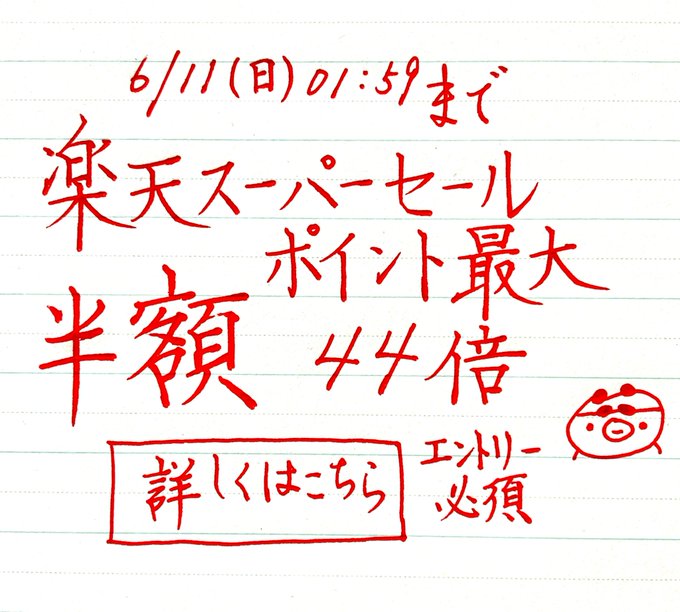 6/11(日)01:59まで
楽天スーパーセール
ポイント最大
半額 44倍
詳しくはこちら
エントリー
必須